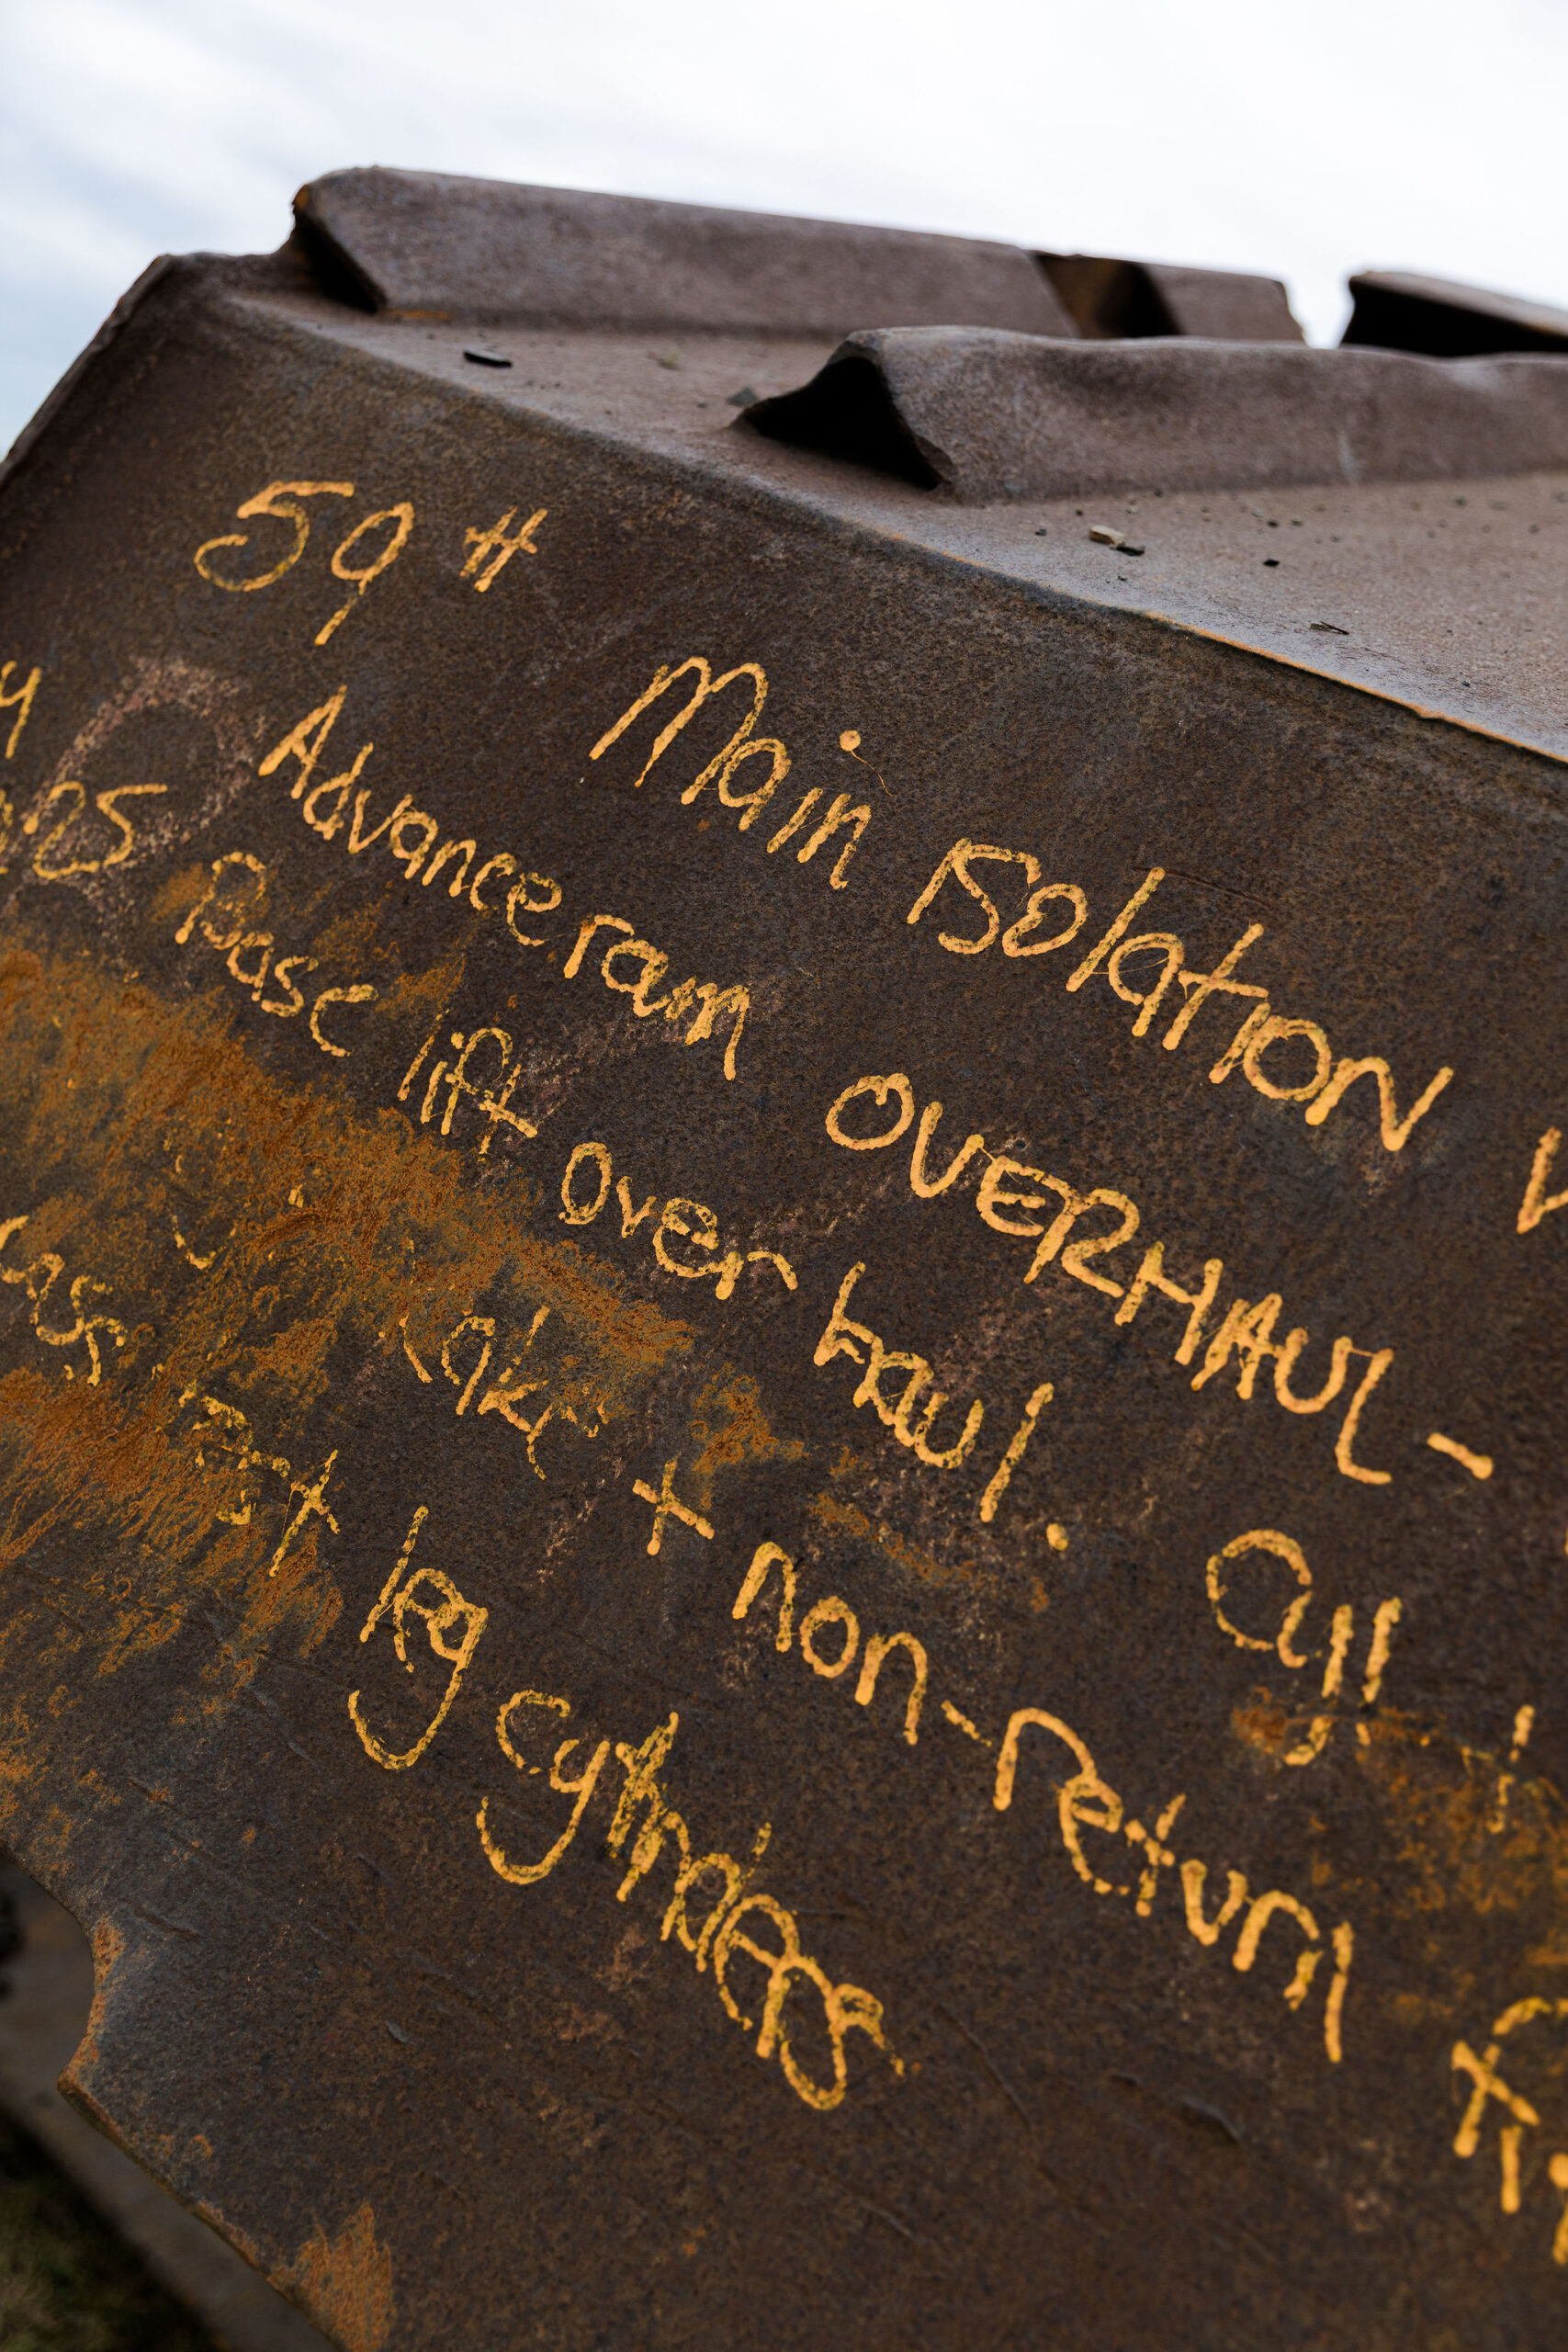 59 #
Main ISOlation
Advance ram OVERHAUL-
25 Base lift Over hawl. Cyl
+ non-return
leg cylinders